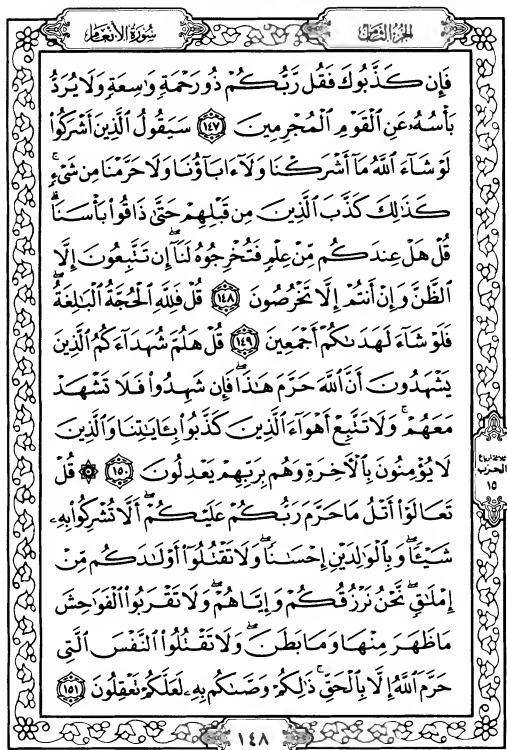 الجزء الثامن
سورة الأنعام
فَإِن كَذَّبُوكَ فَقُل رَّبُّكُمْ ذُو رَحْمَةٍ وَاسِعَةٍ وَلَا يُرَدُّ
بَأْسُهُۥ عَنِ ٱلْقَوْمِ ٱلْمُجْرِمِينَ ١٤٧ سَيَقُولُ ٱلَّذِينَ أَشْرَكُوا۟
لَوْ شَآءَ ٱللَّهُ مَآ أَشْرَكْنَا وَلَآ ءَابَآؤُنَا وَلَا حَرَّمْنَا مِن شَىْءٍ ۚ
كَذَٰلِكَ كَذَّبَ ٱلَّذِينَ مِن قَبْلِهِمْ حَتَّىٰ ذَاقُوا۟ بَأْسَنَا ۗ
قُلْ هَلْ عِندَكُم مِّنْ عِلْمٍ فَتُخْرِجُوهُ لَنَآ ۖ إِن تَتَّبِعُونَ إِلَّا
ٱلظَّنَّ وَإِنْ أَنتُمْ إِلَّا تَخْرُصُونَ ١٤٨ قُلْ فَلِلَّهِ ٱلْحُجَّةُ ٱلْبَٰلِغَةُ ۖ
فَلَوْ شَآءَ لَهَدَىٰكُمْ أَجْمَعِينَ ١٤٩ قُلْ هَلُمَّ شُهَدَآءَكُمُ ٱلَّذِينَ
يَشْهَدُونَ أَنَّ ٱللَّهَ حَرَّمَ هَٰذَا ۖ فَإِن شَهِدُوا۟ فَلَا تَشْهَدْ
مَعَهُمْ ۚ وَلَا تَتَّبِعْ أَهْوَآءَ ٱلَّذِينَ كَذَّبُوا۟ بِـَٔايَٰتِنَا وَٱلَّذِينَ
لَا يُؤْمِنُونَ بِٱلْءَاخِرَةِ وَهُم بِرَبِّهِمْ يَعْدِلُونَ ١٥٠ ۞ قُلْ
تَعَالَوْا۟ أَتْلُ مَا حَرَّمَ رَبُّكُمْ عَلَيْكُمْ ۖ أَلَّا تُشْرِكُوا۟ بِهِۦ
شَيْـًٔا ۖ وَبِٱلْوَٰلِدَيْنِ إِحْسَٰنًا ۖ وَلَا تَقْتُلُوٓا۟ أَوْلَٰدَكُم مِّنْ
إِمْلَٰقٍ ۖ نَّحْنُ نَرْزُقُكُمْ وَإِيَّاهُمْ ۖ وَلَا تَقْرَبُوا۟ ٱلْفَوَٰحِشَ
مَا ظَهَرَ مِنْهَا وَمَا بَطَنَ ۖ وَلَا تَقْتُلُوا۟ ٱلنَّفْسَ ٱلَّتِى
حَرَّمَ ٱللَّهُ إِلَّا بِٱلْحَقِّ ۚ ذَٰلِكُمْ وَصَّىٰكُم بِهِۦ لَعَلَّكُمْ تَعْقِلُونَ ١٥١
ثلاثة أرباع
الحزب
١٥
١٤٨